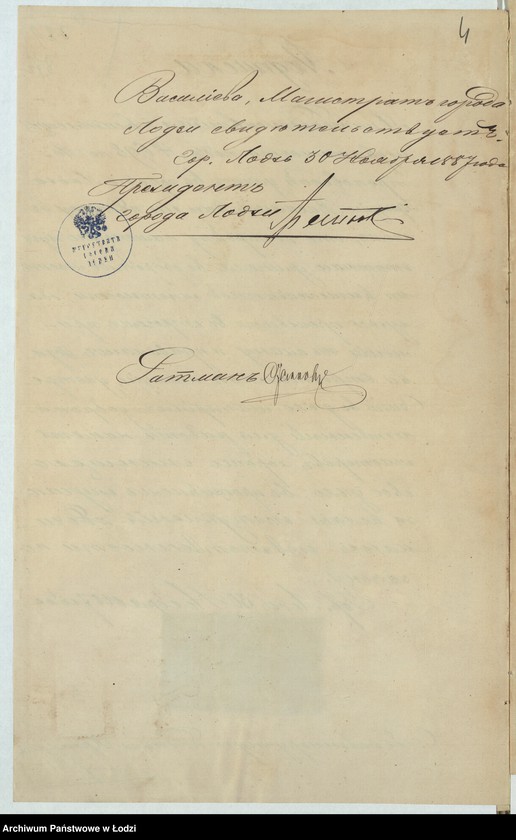 4
Васильева, Магистратъ города
Лодзи свидѣтельствуетъ.
Гор. Лодзь 30 Ноября 1887 года
Президентъ
города Лодзи
МАГИСТРАТЪ
ГОРОДА
ЛОДЗИ
Ратманъ
Archiwum Państwowe w Łodzi